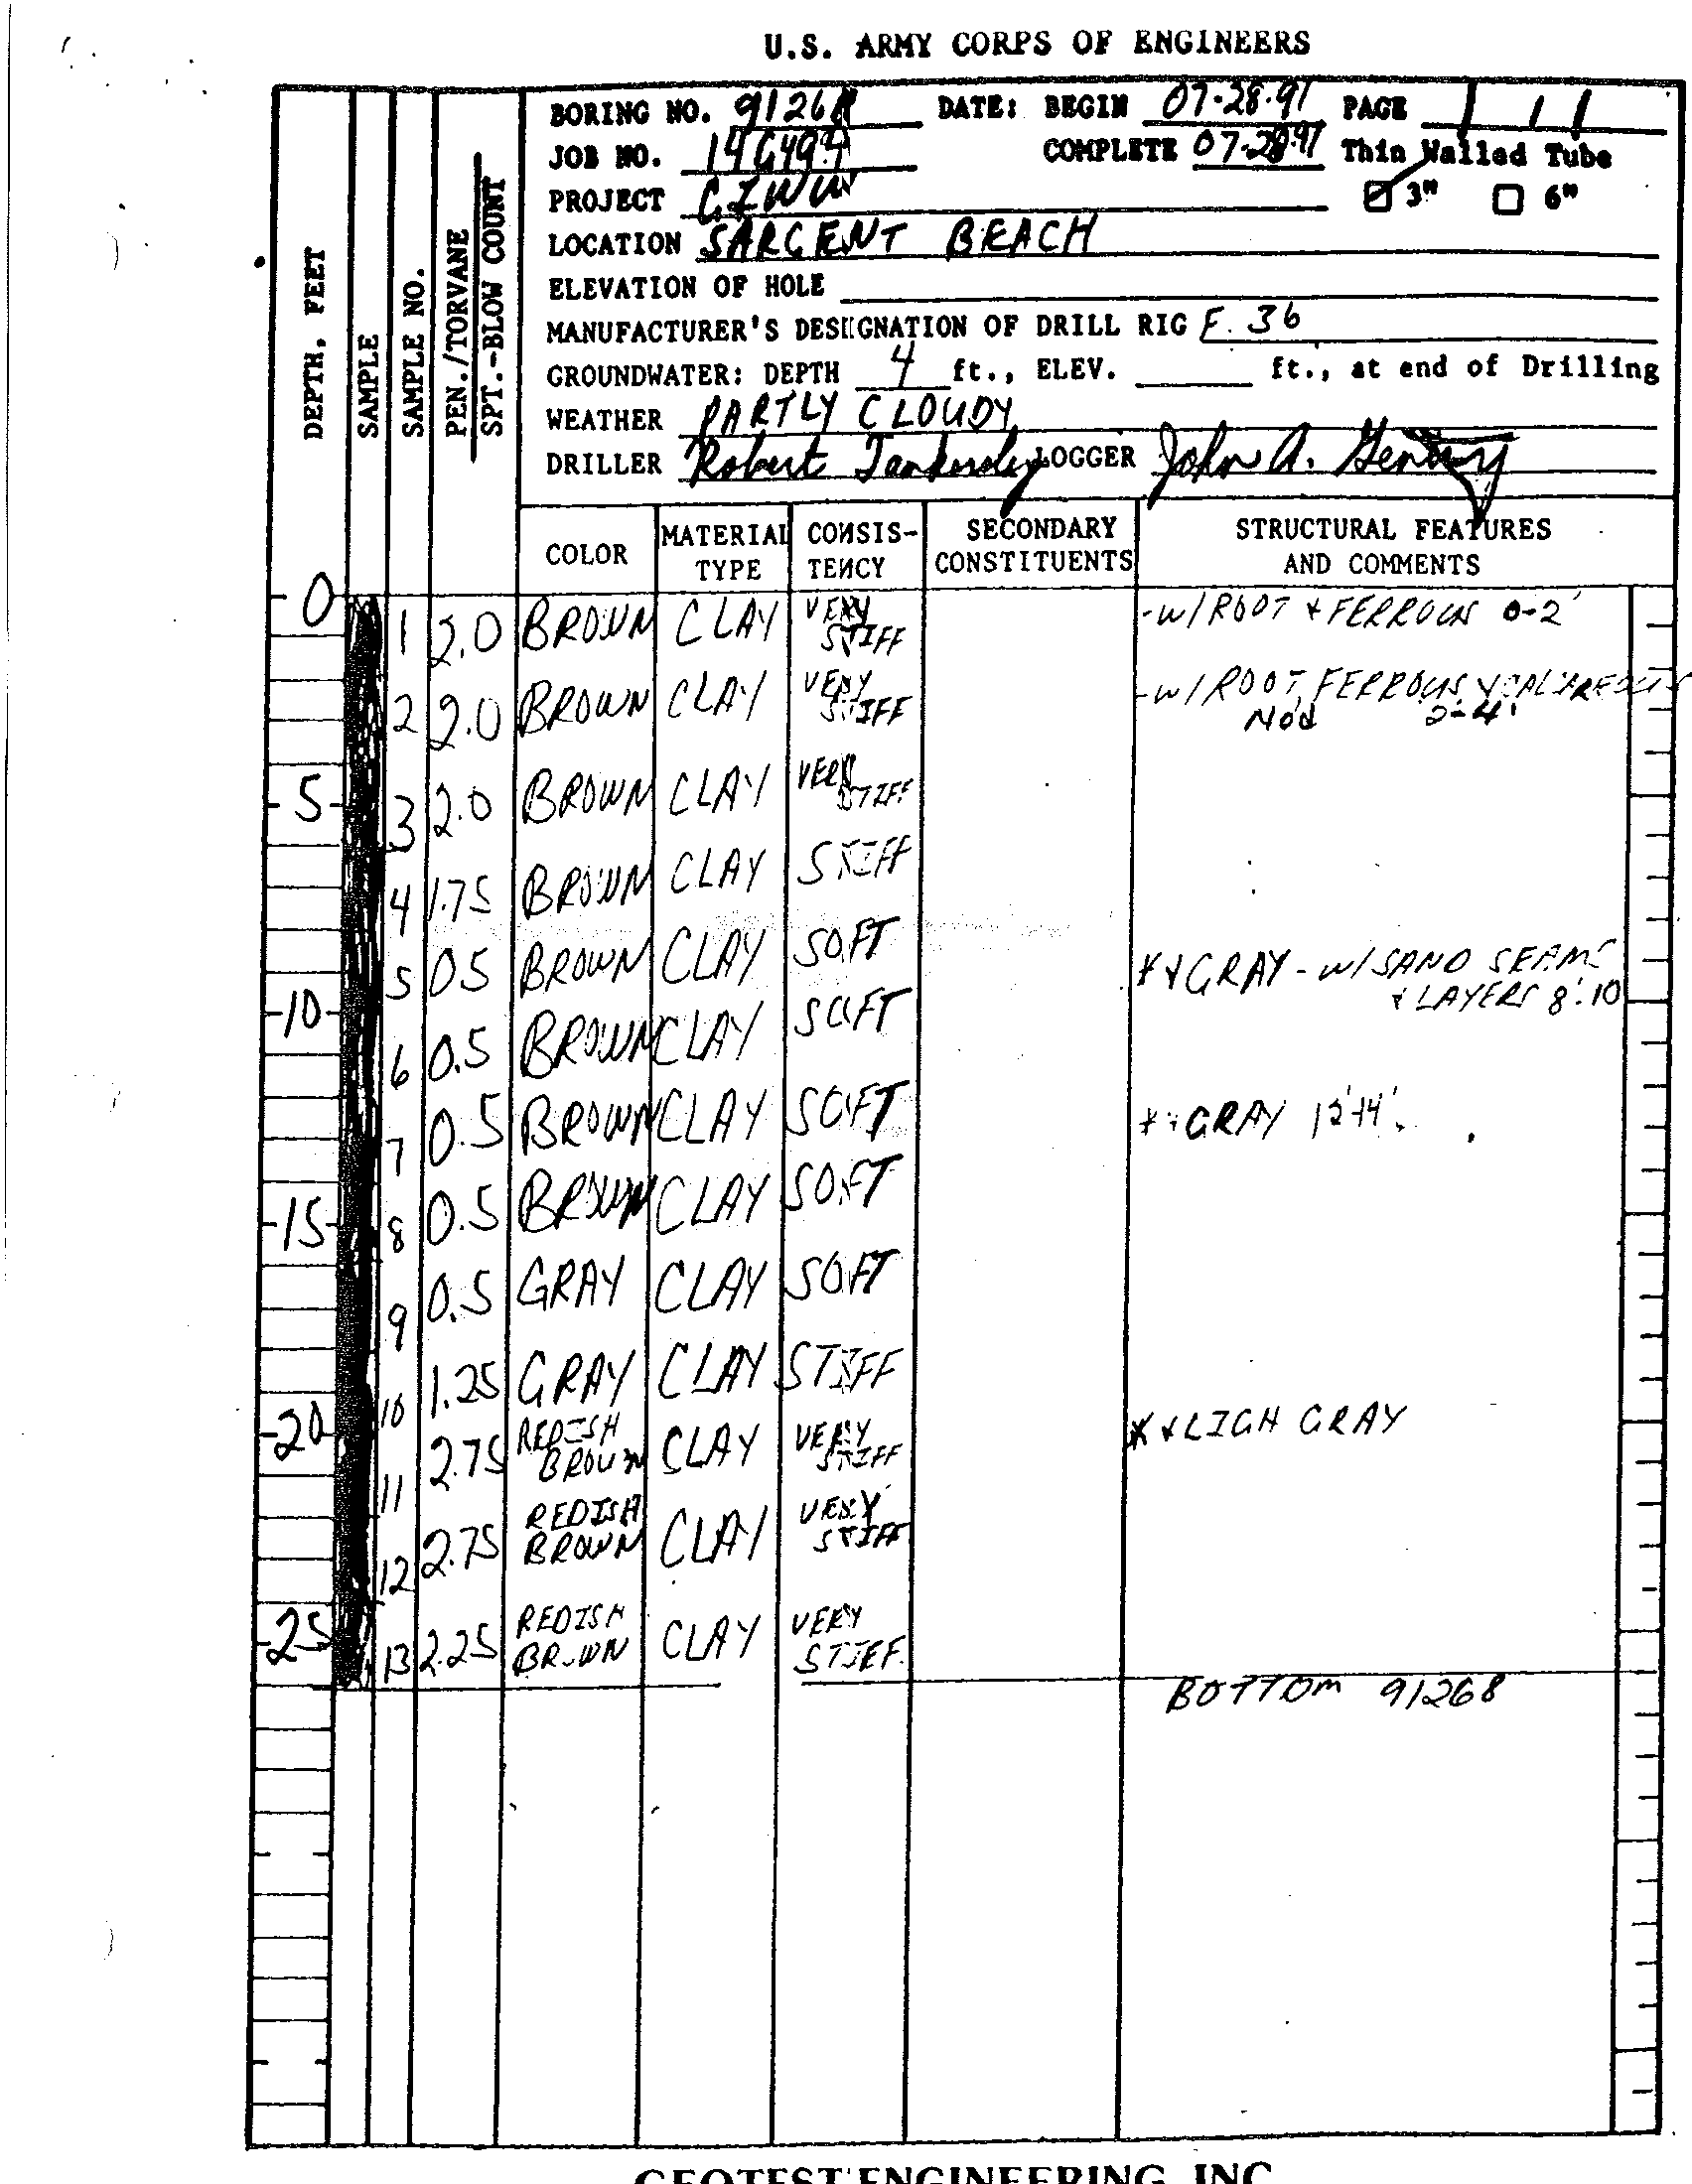 U.S. ARMY CORPS OF ENGINEERS
DEPTH, FEET
SAMPLE
SAMPLE NO.
PEN./TORVANE
SPT.-BLOW COUNT
BORING NO. 91268 DATE: BEGIN 07-28-91 PAGE 1 / 1
JOB NO. COMPLETE 07-28-91 Thin Walled Tube
PROJECT GIWW 3" 6"
LOCATION SARGENT BEACH
ELEVATION OF HOLE
MANUFACTURER'S DESIGNATION OF DRILL RIG F. 36
GROUNDWATER: DEPTH 4 ft., ELEV. ft., at end of Drilling
WEATHER PARTLY CLOUDY
DRILLER Robert Tankersley LOGGER John A. Gentry
COLOR MATERIAL TYPE CONSIS-TENCY SECONDARY CONSTITUENTS STRUCTURAL FEATURES AND COMMENTS
0
1 2.0 BROWN CLAY VERY STIFF -W/ROOT & FERROUS 0-2'
2 2.0 BROWN CLAY VERY STIFF -W/ROOT, FERROUS Nod 2-4'
5
3 2.0 BROWN CLAY VERY STIFF
4 1.75 BROWN CLAY STIFF
5 0.5 BROWN CLAY SOFT *&GRAY-W/SAND SEAMS & LAYERS 8'-10
10
6 0.5 BROWN CLAY SOFT
7 0.5 BROWN CLAY SOFT *&GRAY 12'-14'
15
8 0.5 BROWN CLAY SOFT
9 0.5 GRAY CLAY SOFT
10 1.25 GRAY CLAY STIFF
20
11 2.75 REDISH BROWN CLAY VERY STIFF *&LIGH GRAY
12 2.75 REDISH BROWN CLAY VERY STIFF
25
13 2.25 REDISH BROWN CLAY VERY STIFF
BOTTOM 91268
GEOTEST ENGINEERING, INC